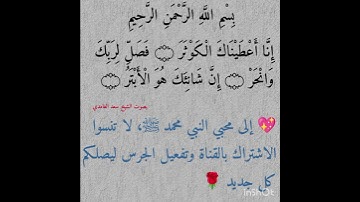 بِسْمِ اللَّهِ الرَّحْمَنِ الرَّحِيمِ
إِنَّا أَعْطَيْنَاكَ الْكَوْثَرَ ۝ فَصَلِّ لِرَبِّكَ
وَانْحَرْ ۝ إِنَّ شَانِئَكَ هُوَ الْأَبْتَرُ ۝
بصوت الشيخ سعد الغامدي
💖 إلى محبي النبي محمد ﷺ، لا تنسوا
الاشتراك بالقناة وتفعيل الجرس ليصلكم
كل جديد 🌹
InShot